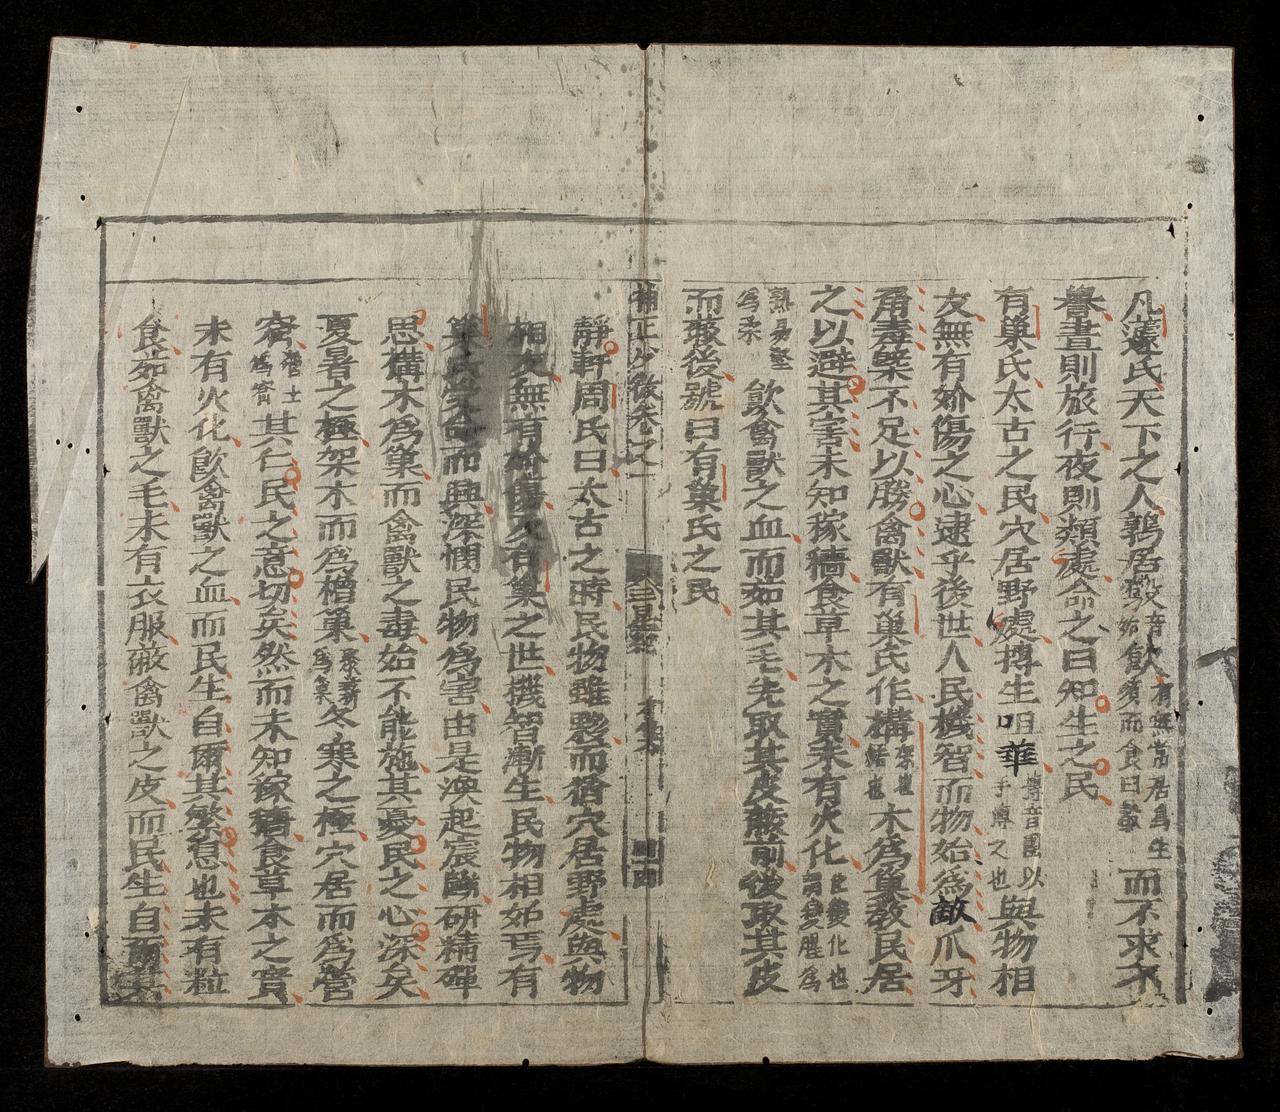 凡蘧氏天下之人鶉居鷇音冦人有無常居爲生始飲須而食曰鷇而不求不
譽晝則旅行夜則類處命之曰知生之民
有巢氏太古之民穴居野處摶生咀華摶音團以手摶之也與物相
友無有妎傷之心逮乎後世人民機智而物始爲敵爪牙
角毒槩不足以勝禽獸有巢氏作構架也結也木爲巢教民居
之以避其害未知稼穡食草木之實未有火化化變化也謂變腥爲
熟易堅爲柔飮禽獸之血而茹其毛先取其皮蔽前後取其皮
而蔽後號曰有巢氏之民
補正少微卷之一
靜軒周氏曰太古之時民物雖夥而猶穴居野處與物
相友無有妎傷及有巢之世機智漸生民物相妎焉有
巢氏應天命而興深憫民物爲害由是渙起宸斷研精殫
思構木爲巢而禽獸之毒始不能施其憂民之心深矣
夏暑之極架木而爲橧巢聚薪爲巢冬寒之極穴居而爲營
窟營土爲窟其仁民之意切矣然而未知稼穡食草木之實
未有火化飮禽獸之血而民生自爾其繁息也未有粒
食茹禽獸之毛未有衣服蔽禽獸之皮而民生自爾其